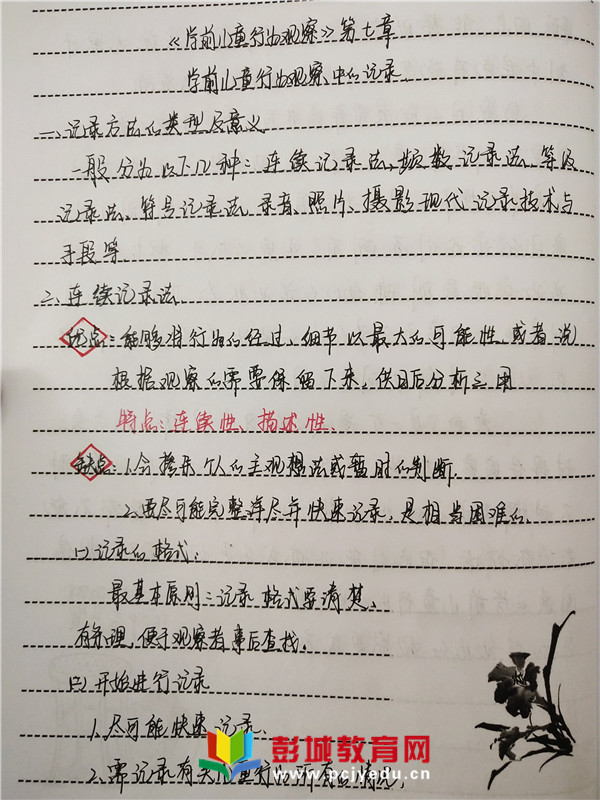 《学前儿童行为观察》第七章
学前儿童行为观察中的记录
一、记录方法的类型及意义
一般分为以下几种：连续记录法、频数记录法、等级
记录法、符号记录法、录音、照片、摄影现代记录技术与
手段等
二、连续记录法
优点：能够将行为的经过，细节以最大的可能性，或者说
根据观察的需要保留下来，供日后分析之用
特点：连续性、描述性、
缺点：1.会掺杂个人的主观想法或暂时的判断.
2.要尽可能完整详尽并快速记录，是相当困难的.
(一)记录的格式：
最基本原则：记录格式要清楚、
有条理，便于观察者事后查找.
(二)开始进行记录
1.尽可能快速记录、
2.需记录有关儿童行为所有的情况，
彭城教育网
www.pcjyedu.cn